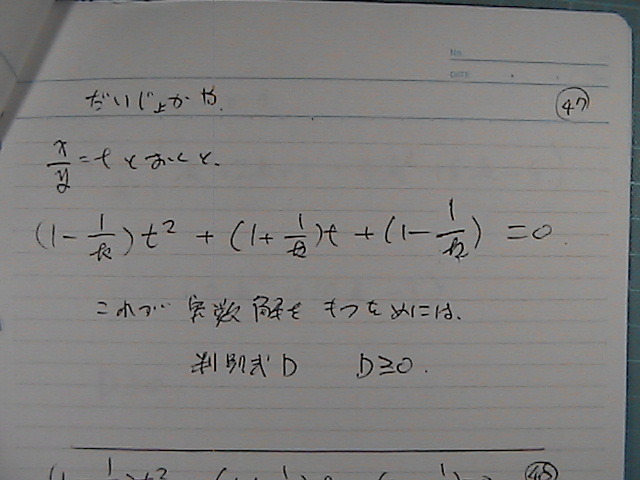 No.
DATE
だいじょぶか や.
㊼
x/y = t とおくと.
(1 - 1/k) t² + (1 + 1/k) t + (1 - 1/k) = 0.
これが 実数解を もつためには.
判別式 D D≥0.
㊽